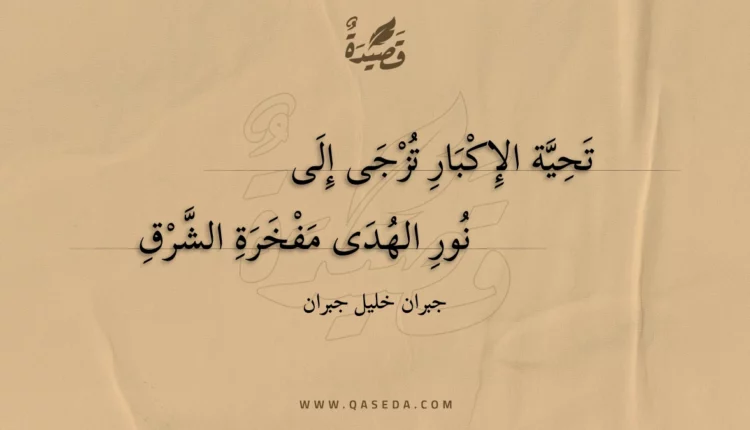 قَصِيْدَةٌ
تَحِيَّة الإِكْبَارِ تُزْجَى إِلَى
نُورِ الهُدَى مَفْخَرَةِ الشَّرْقِ
جبران خليل جبران
WWW.QASEDA.COM